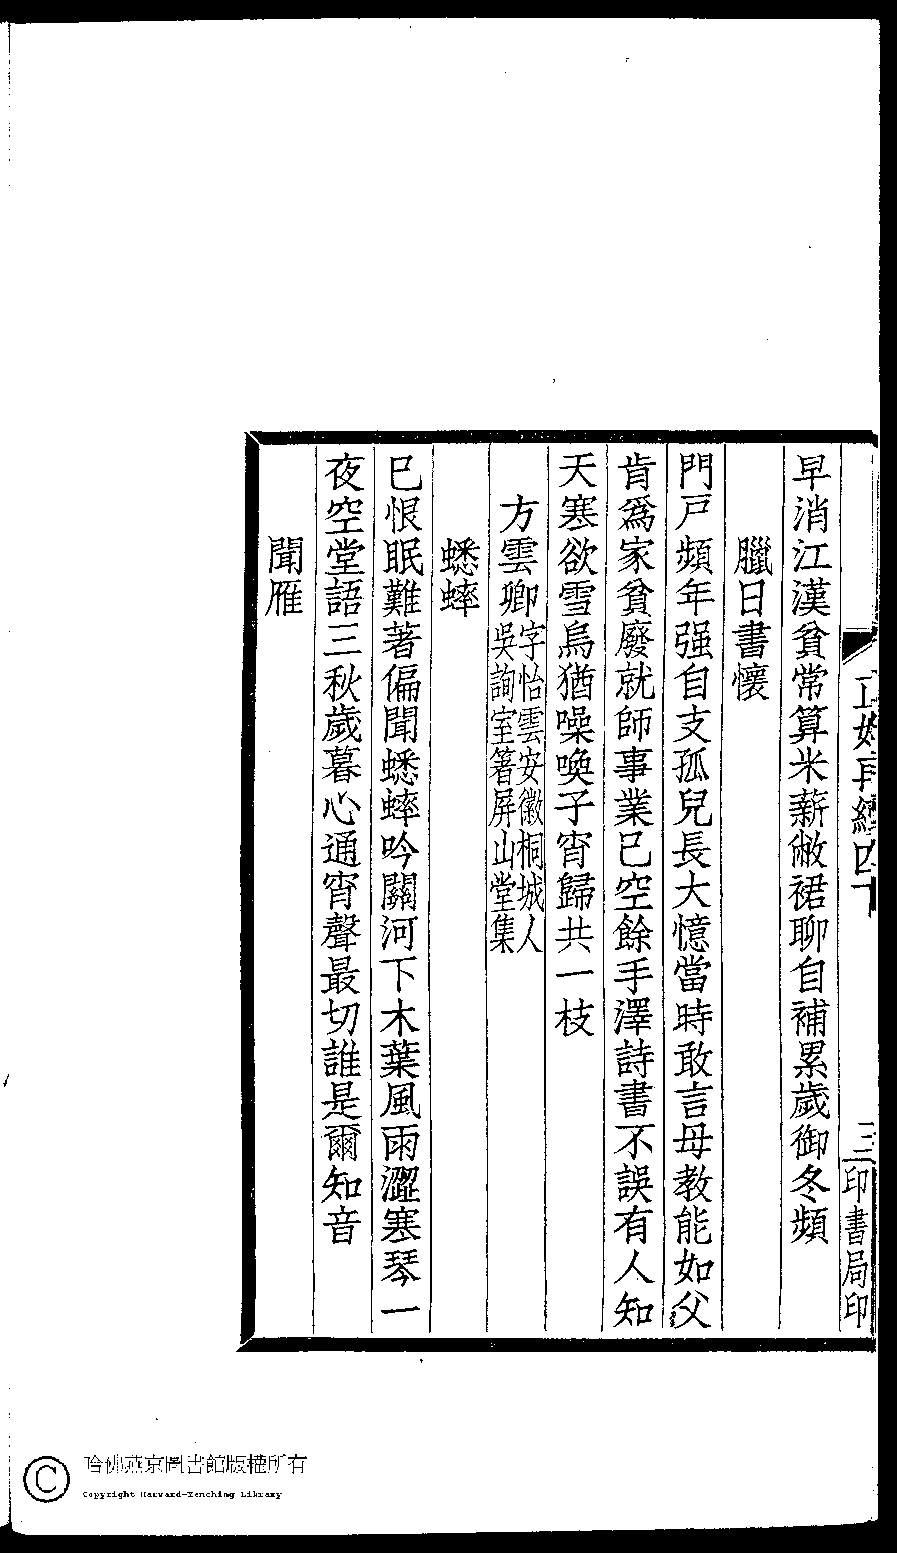 早消江漢貧常算米薪敝裙聊自補累歲御冬頻
臘日書懷
門戸頻年强自支孤兒長大憶當時敢言母教能如父
肯爲家貧廢就師事業已空餘手澤詩書不誤有人知
天寒欲雪烏猶噪喚子宵歸共一枝
方雲卿字怡雲安徽桐城人
吳詢室箸屏山堂集
蟋蟀
已恨眠難著偏聞蟋蟀吟關河下木葉風雨澀寒琴一
夜空堂語三秋歲暮心通宵聲最切誰是爾知音
聞雁
三印書局印
哈佛燕京圖書館版權所有
Copyright Harvard-Yenching Library